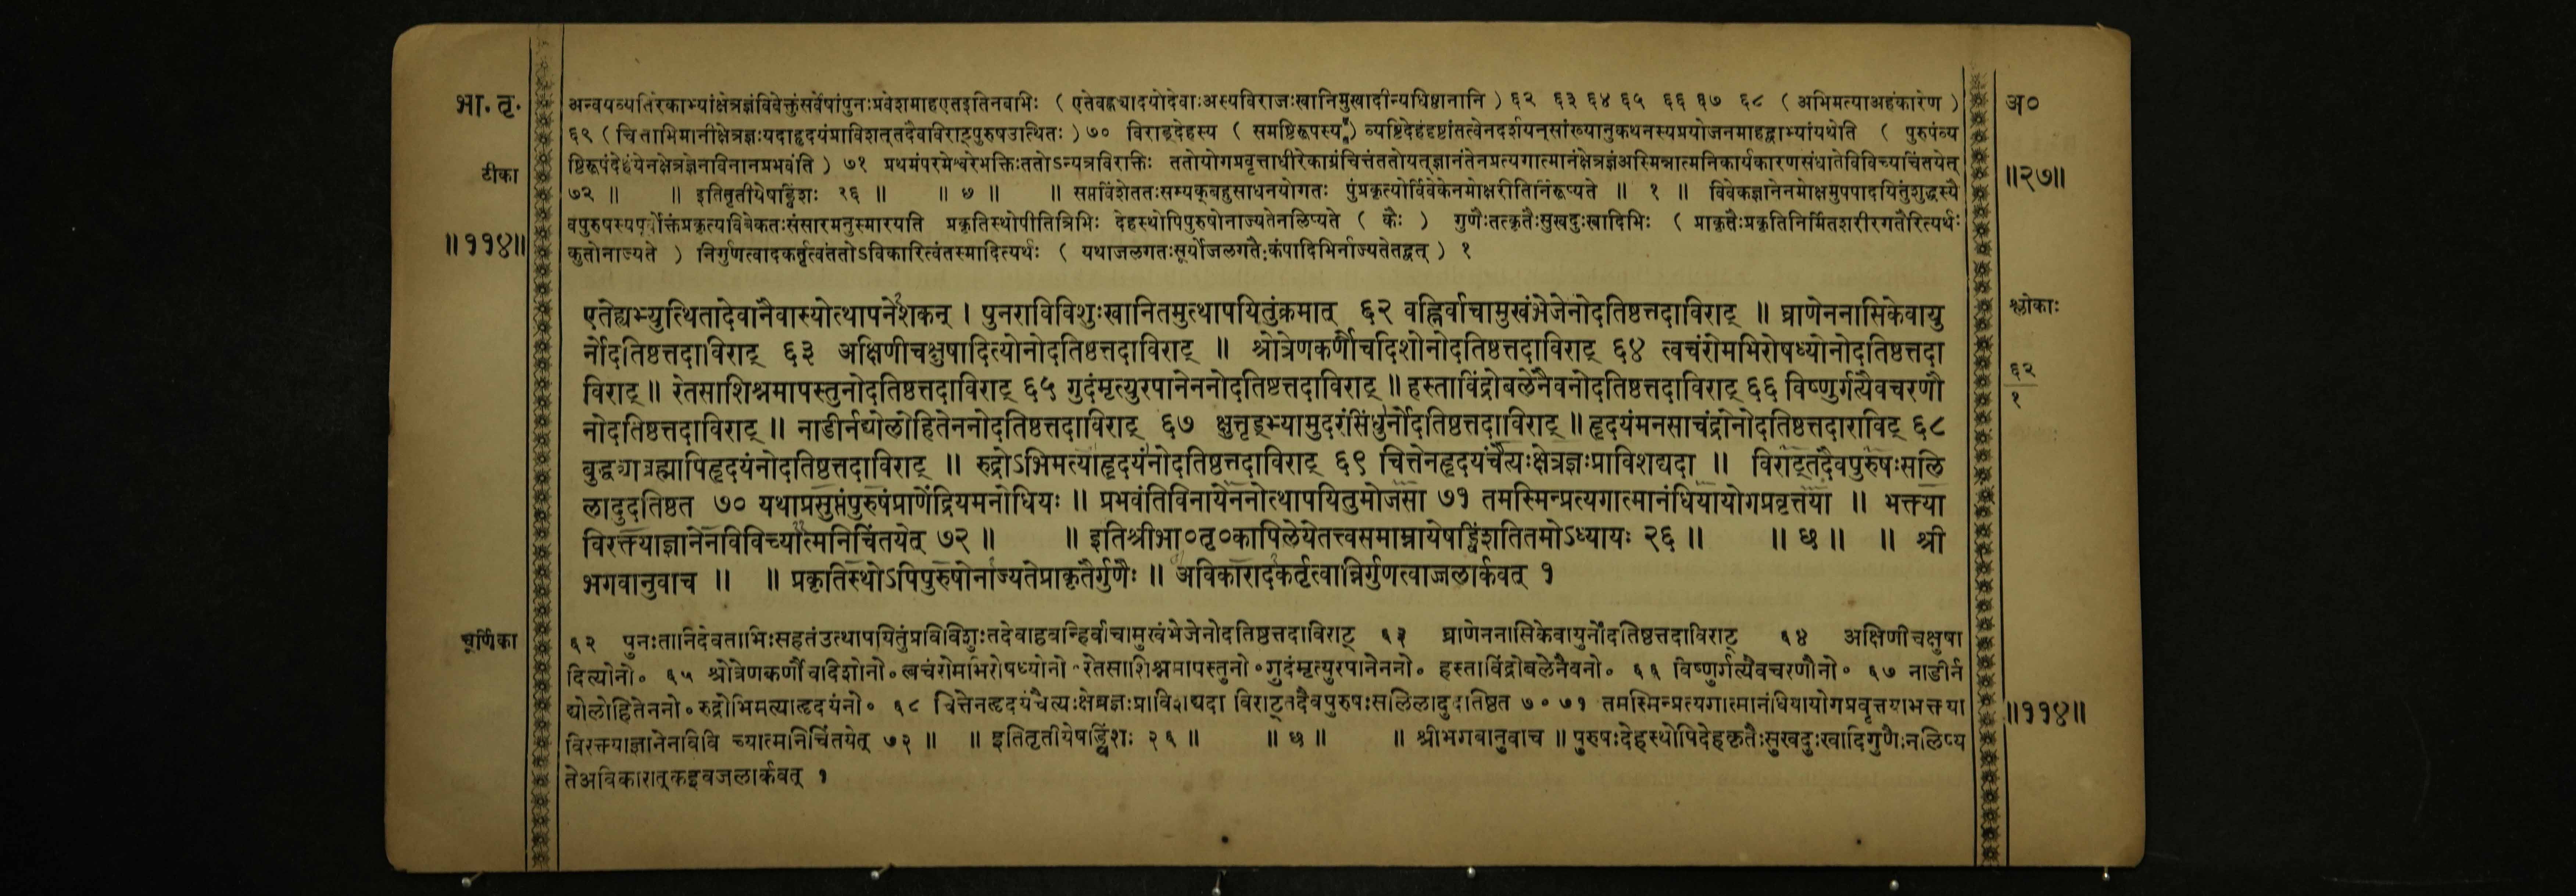 भा. तृ.
टीका
॥११४॥
अन्वयव्यतिरेकाभ्यांक्षेत्रज्ञंविवेक्तुंसर्वेषांपुनःप्रवेशमाहएतइतिनवभिः ( एतेवह्न्यादयोदेवाःअस्यविराजःखानिमुखादीन्यधिष्ठानानि ) ६२ ६३ ६४ ६५ ६६ ६७ ६८ ( अभिमत्याअहंकारेण )
६९ ( चित्ताभिमानीक्षेत्रज्ञःयदाहृदयंप्राविशत्तदैवविराट्पुरुषउत्थितः ) ७० विराड्देहस्य ( समष्टिरूपस्य ) व्यष्टिदेहंदृष्टांतत्वेनदर्शयन्सांख्यानुकथनस्यप्रयोजनमाहद्वाभ्यांयथेति ( पुरुषंव्य
ष्टिरूपंदेहंयेनक्षेत्रज्ञेनविनानप्रभवंति ) ७१ प्रथमंपरमेश्वरेभक्तिःततोऽन्यत्रविरक्तिः ततोयोगप्रवृत्ताधीरेकाग्रंचित्तंततोयत्ज्ञानंतेनप्रत्यगात्मानंक्षेत्रज्ञंअस्मिन्नात्मनिकार्यकारणसंघातेविविच्यचिंतयेत्
७२ ॥ ॥ इतितृतीयेषड्विंशः २६ ॥ ॥ ७ ॥ ॥ सप्तविंशेततःसम्यक्बहुसाधनयोगतः पुंप्रकृत्योर्विवेकेनमोक्षरीतिर्निरूप्यते ॥ १ ॥ विवेकज्ञानेनमोक्षमुपपादयितुंशुद्धस्यै
वपुरुषस्यपूर्वोक्तंप्रकृत्यविवेकतःसंसारमनुस्मारयति प्रकृतिस्थोपीतित्रिभिः देहस्थोपिपुरुषोनाज्यतेनलिप्यते ( कैः ) गुणैःतत्कृतैःसुखदुःखादिभिः ( प्राकृतैःप्रकृतिनिर्मितशरीरगतैरित्यर्थः
कुतोनाज्यते ) निर्गुणत्वादकर्तृत्वंततोऽविकारित्वंतस्मादित्यर्थः ( यथाजलगतःसूर्योजलगतैःकंपादिभिर्नाज्यतेतद्वत् ) १
एतेह्यभ्युत्थितादेवानैवास्योत्थापनेशकन् । पुनराविविशुःखानितमुत्थापयितुंक्रमात् ६२ वह्निर्वाचामुखंभेजेनोदतिष्ठत्तदाविराट् ॥ घ्राणेननासिकेवायु
र्नोदतिष्ठत्तदाविराट् ६३ अक्षिणीचक्षुषादित्योनोदतिष्ठत्तदाविराट् ॥ श्रोत्रेणकर्णौचदिशोनोदतिष्ठत्तदाविराट् ६४ त्वचंरोमभिरोषध्योनोदतिष्ठत्तदा
विराट् ॥ रेतसाशिश्नमापस्तुनोदतिष्ठत्तदाविराट् ६५ गुदंमृत्युरपानेननोदतिष्टत्तदाविराट् ॥ हस्ताविंद्रोबलेनैवनोदतिष्ठत्तदाविराट् ६६ विष्णुर्गत्यैवचरणौ
नोदतिष्ठत्तदाविराट् ॥ नाडीर्नद्योलोहितेननोदतिष्ठत्तदाविराट् ६७ क्षुत्तृड्भ्यामुदरंसिंधुर्नोदतिष्ठत्तदाविराट् ॥ हृदयंमनसाचंद्रोनोदतिष्ठत्तदाराविट् ६८
बुद्ध्याब्रह्मापिहृदयंनोदतिष्ठत्तदाविराट् ॥ रुद्रोऽभिमत्याहृदयंनोदतिष्ठत्तदाविराट् ६९ चित्तेनहृदयंचैत्यःक्षेत्रज्ञःप्राविशद्यदा ॥ विराट्तदैवपुरुषःसलि
लादुदतिष्ठत ७० यथाप्रसुप्तंपुरुषंप्राणेंद्रियमनोधियः ॥ प्रभवंतिविनायेननोत्थापयितुमोजसा ७१ तमस्मिन्प्रत्यगात्मानंधियायोगप्रवृत्तया ॥ भक्त्या
विरक्त्याज्ञानेनविविच्यात्मनिचिंतयेत् ७२ ॥ ॥ इतिश्रीभा०तृ०कापिलेयेतत्त्वसमाम्नायेषड्विंशतितमोऽध्यायः २६ ॥ ॥ छ ॥ ॥ श्री
भगवानुवाच ॥ ॥ प्रकृतिस्थोऽपिपुरुषोनाज्यतेप्राकृतैर्गुणैः ॥ अविकारादकर्तृत्वान्निर्गुणत्वाज्जलार्कवत् १
चूर्णिका
६२ पुनःतानिदेवताभिःसहतंउत्थापयितुंप्रविविशुःतदेवाहवन्हिर्वाचामुखंभेजेनोदतिष्ठत्तदाविराट् ६३ घ्राणेननासिकेवायुर्नोदतिष्ठत्तदाविराट् ६४ अक्षिणीचक्षुषा
दित्योनो० ६५ श्रोत्रेणकर्णौचदिशोनो० त्वचंरोमभिरोषध्योनो०रेतसाशिश्नमापस्तुनो०गुदंमृत्युरपानेननो० हस्ताविंद्रोबलेनैवनो० ६६ विष्णुर्गत्यैवचरणौनो० ६७ नाडीर्न
द्योलोहितेननो०रुद्रोभिमत्याहृदयंनो० ६८ चित्तेनहृदयंचैत्यःक्षेत्रज्ञःप्राविशद्यदा विराट्तदैवपुरुषःसलिलादुदतिष्ठत ७० ७१ तमस्मिन्प्रत्यगात्मानंधियायोगप्रवृत्तयाभक्त्या
विरक्त्याज्ञानेनविवि च्यात्मनिचिंतयेत् ७२ ॥ ॥ इतितृतीयेषड्विंशः २६ ॥ ॥ छ ॥ ॥ श्रीभगवानुवाच ॥ पुरुषःदेहस्थोपिदेहकृतैःसुखदुःखादिगुणैःनलिप्य
तेअविकारात्कइवजलार्कवत् १
अ०
॥२७॥
श्लोकाः
६२
१
॥११४॥